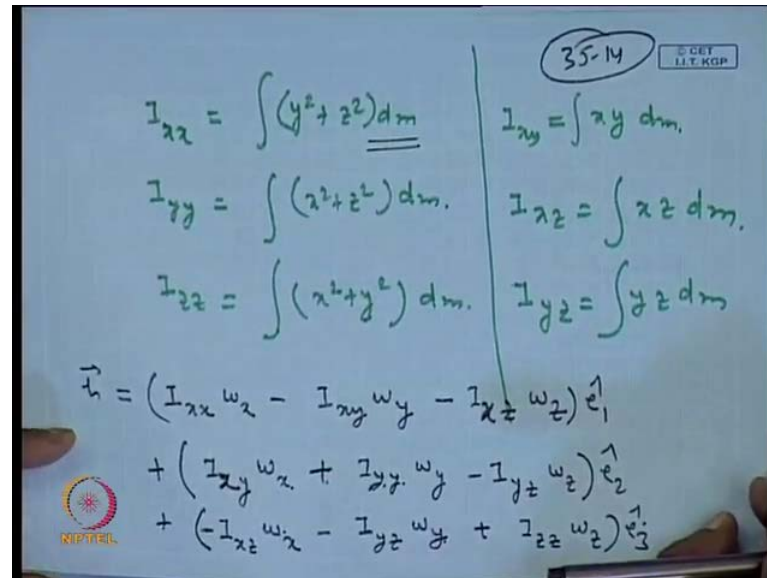 35-14
© CET
I.I.T. KGP
I_xx = ∫(y² + z²)dm
I_xy = ∫ xy dm.
I_yy = ∫(x² + z²) dm.
I_xz = ∫ xz dm.
I_zz = ∫(x² + y²) dm.
I_yz = ∫ yz dm
h⃗ = (I_xx ω_x - I_xy ω_y - I_xz ω_z) ê₁
+ (I_xy ω_x + I_yy ω_y - I_yz ω_z) ê₂
+ (-I_xz ω_x - I_yz ω_y + I_zz ω_z) ê₃
NPTEL